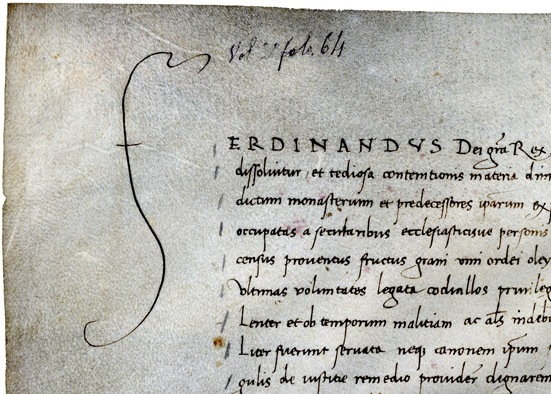 Vol fol. 64
FERDINANDVS Dei gra Rex
dissolvitur, et tediosa contemtionis materia dim
dictum monasterium et predecessores ipsarum ex
occupatas a secularibus ecclesiasticisve personis
census proventus fructus grani vini ordei oley
vltimas voluntates legata codicillos privileg
Lenter et ob temporum malitiam ac als indebi
Liter fuerunt servata neq canonem ipsum
gulis de iustitie remedio provider dignarem